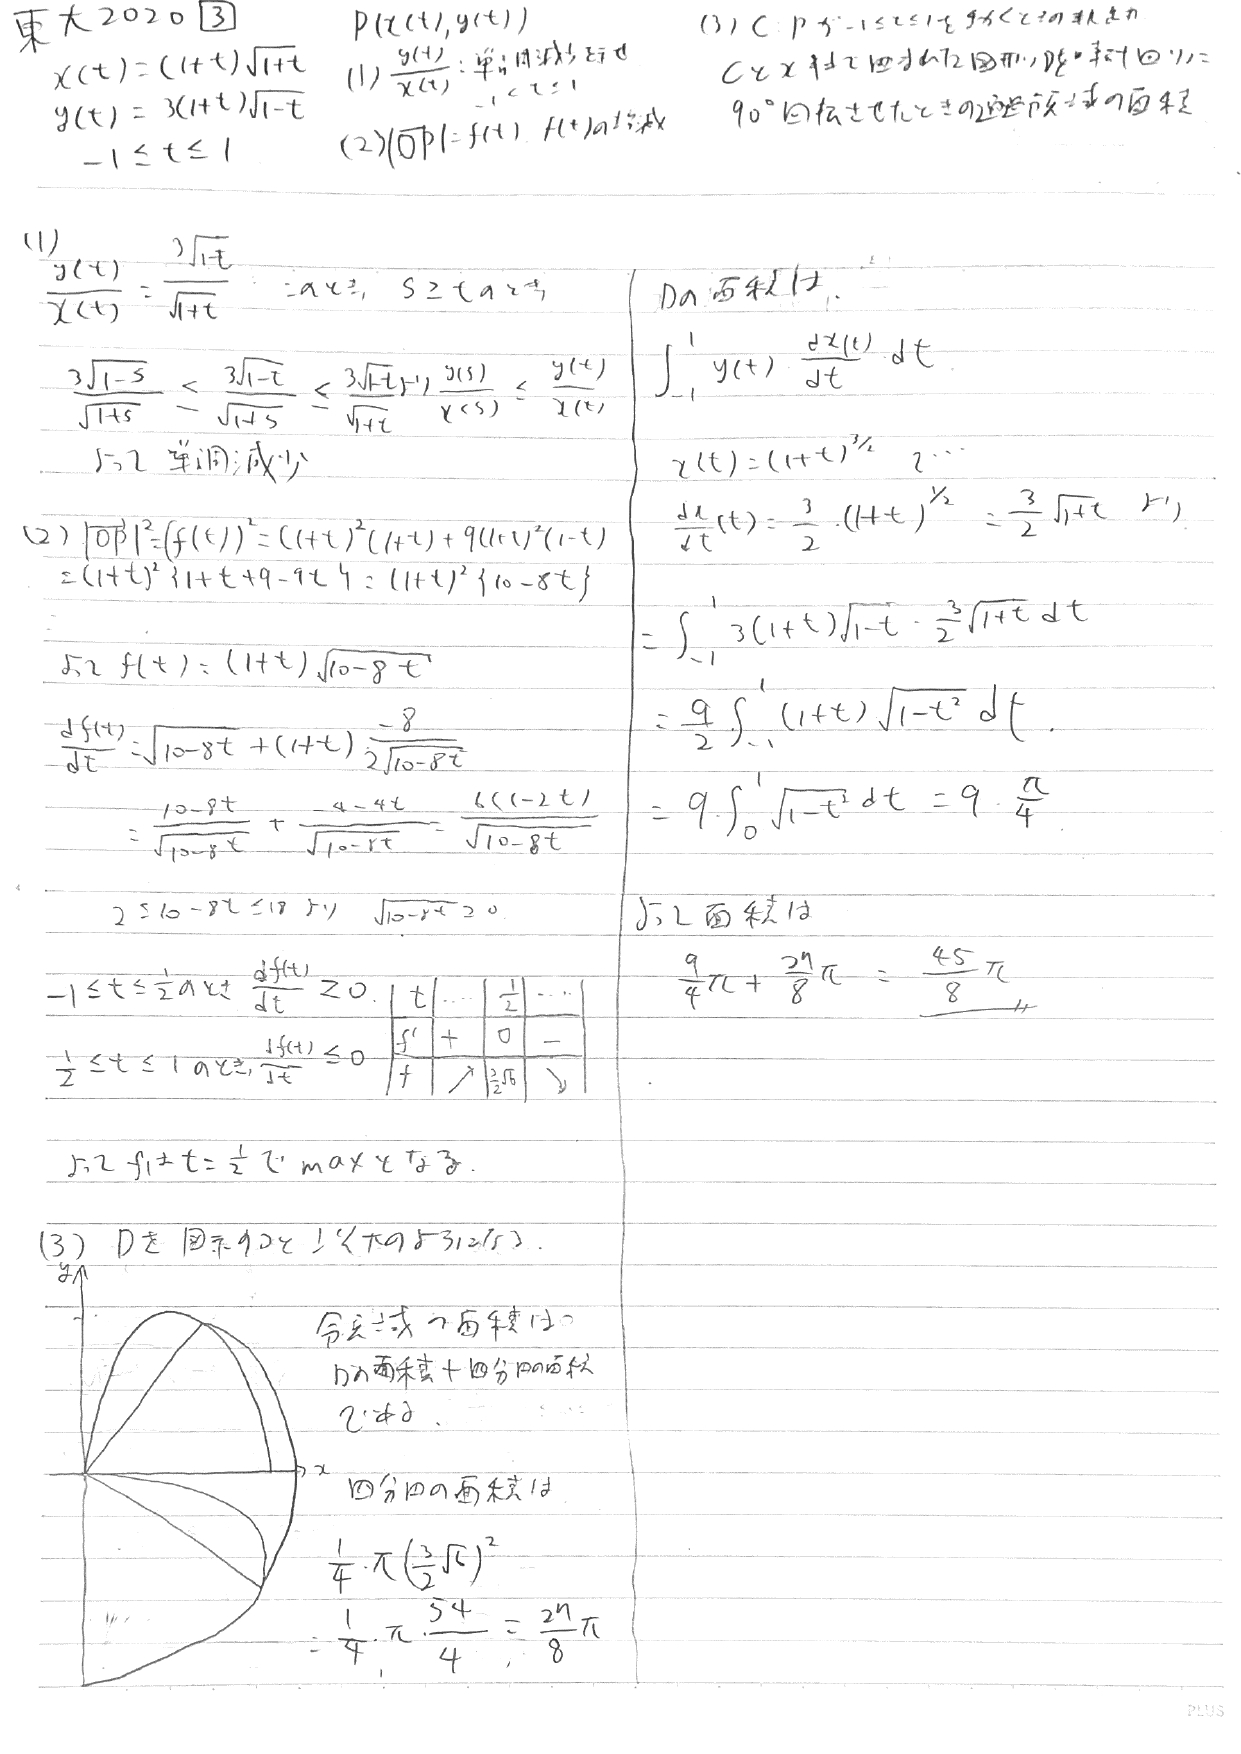 東大2020 3
x(t)=(1+t)√1+t
y(t)=3(1+t)√1-t
-1≤t≤1
P(x(t),y(t))
(1) y(t)/x(t):単調減少を示せ
-1<t≤1
(2)|OP|=f(t) f(t)の増減
(3) C:Pが-1≤t≤1を
Cとx軸で囲まれた図形 時計回りに
90°回転させたときの通過領域の面積
(1)
y(t)/x(t) = 3√1-t/√1+t このとき, s≥tのとき
3√1-s/√1+s ≤ 3√1-t/√1+s ≤ 3√1-t/√1+t より y(s)/x(s) ≤ y(t)/x(t)
よって 単調減少
(2) |OP|²=(f(t))²=(1+t)²(1+t)+9(1+t)²(1-t)
=(1+t)²{1+t+9-9t}=(1+t)²{10-8t}
よって f(t)=(1+t)√10-8t
df(t)/dt=√10-8t+(1+t)·-8/2√10-8t
=10-8t/√10-8t + -4-4t/√10-8t = 6(1-2t)/√10-8t
2≤10-8t≤18 より √10-8t≥0
-1≤t≤1/2のとき df(t)/dt ≥0.
1/2≤t≤1のとき, df(t)/dt ≤0
t | .... | 1/2 | ....
f' | + | 0 | -
f | ↗ | 3/2√6 | ↘
よってfはt=1/2でmaxとなる.
(3) Dを図示すると 次のようになる.
y
x
領域の面積は
Dの面積+四分円の面積
である.
四分円の面積は
1/4·π(3/2√6)²
=1/4·π·54/4=27/8π
Dの面積は,
∫₋₁¹ y(t)·dx(t)/dt·dt
x(t)=(1+t)^3/2 で…
dx/dt(t)=3/2·(1+t)^1/2=3/2√1+t より
=∫₋₁¹ 3(1+t)√1-t·3/2√1+t dt
=9/2∫₋₁¹(1+t)√1-t² dt.
=9·∫₀¹√1-t² dt=9·π/4
よって面積は
9/4π+27/8π=45/8π
PLUS